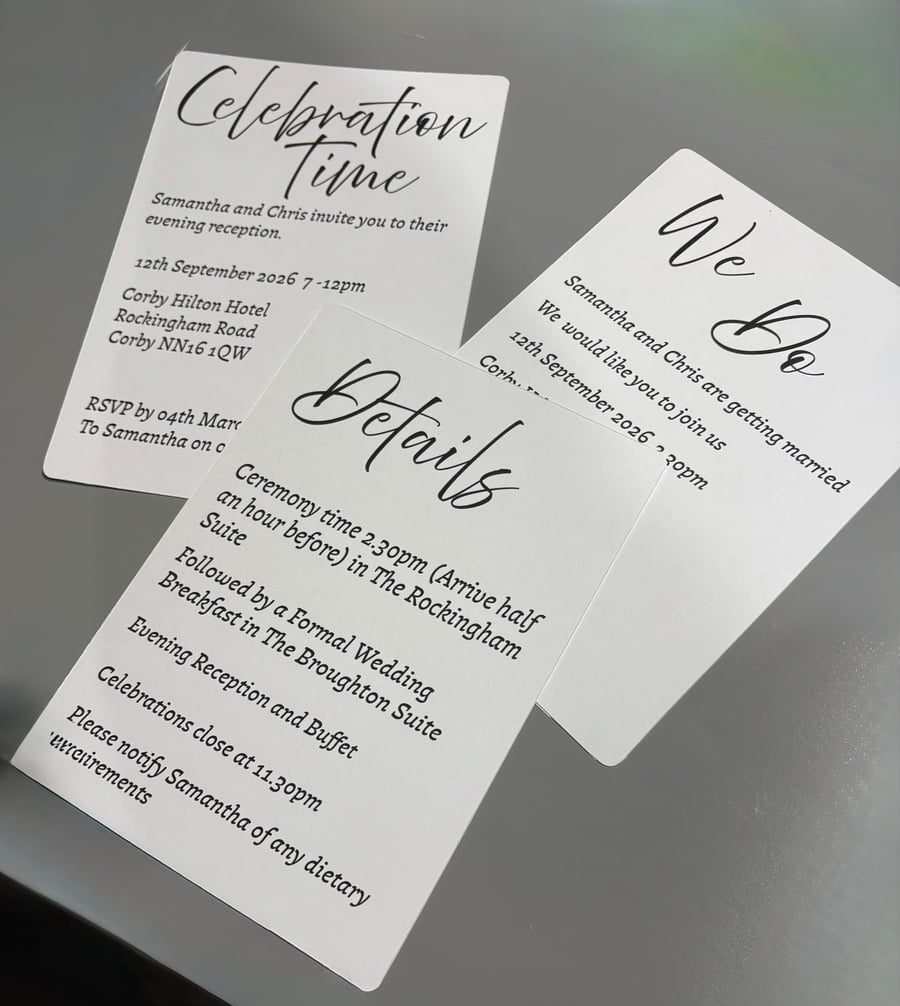 Celebration
Time
Samantha and Chris invite you to their
evening reception.
12th September 2026 7 -12pm
Corby Hilton Hotel
Rockingham Road
Corby NN16 1QW
RSVP by 04th
To Samantha on
We
Do
Samantha and Chris are getting married
We would like you to join us
12th September 2026
Details
Ceremony time 2.30pm (Arrive half
an hour before) in The Rockingham
Suite
Followed by a Formal Wedding
Breakfast in The Broughton Suite
Evening Reception and Buffet
Celebrations close at 11.30pm
Please notify Samantha of any dietary